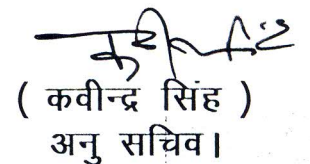 ( कवीन्द्र सिंह )
अनु सचिव।